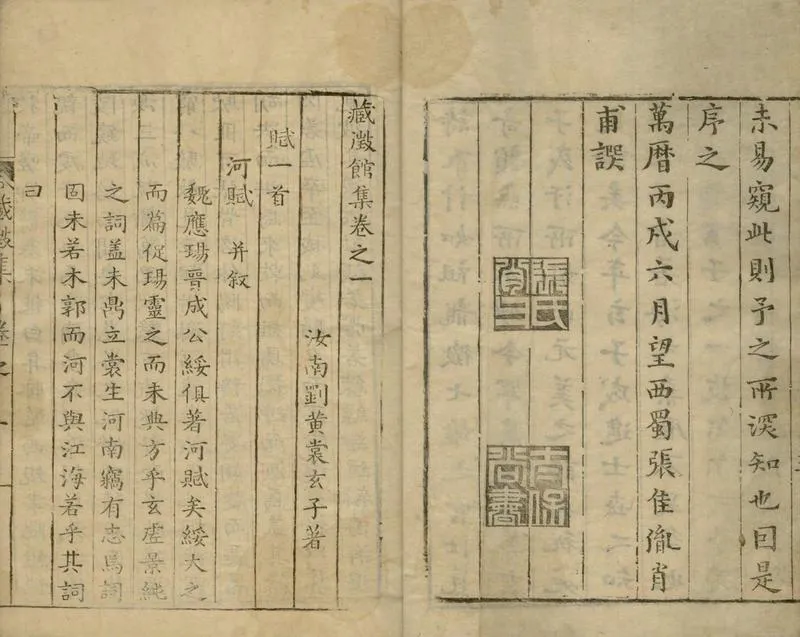 未易窺此則予之所深知也囙是
序之
萬曆丙戌六月望西蜀張佳胤肖
甫譔
藏澂館集卷之一
汝南劉黃裳玄子著
賦一首
河賦 并叙
魏應瑒晉成公綏俱著河賦矣綏大之
而篇促瑒靈之而未典方乎玄虛景純
之詞蓋未鼎立裳生河南竊有志焉詞
固未若木郭而河不與江海著乎其詞
曰
藏澂集 卷之一